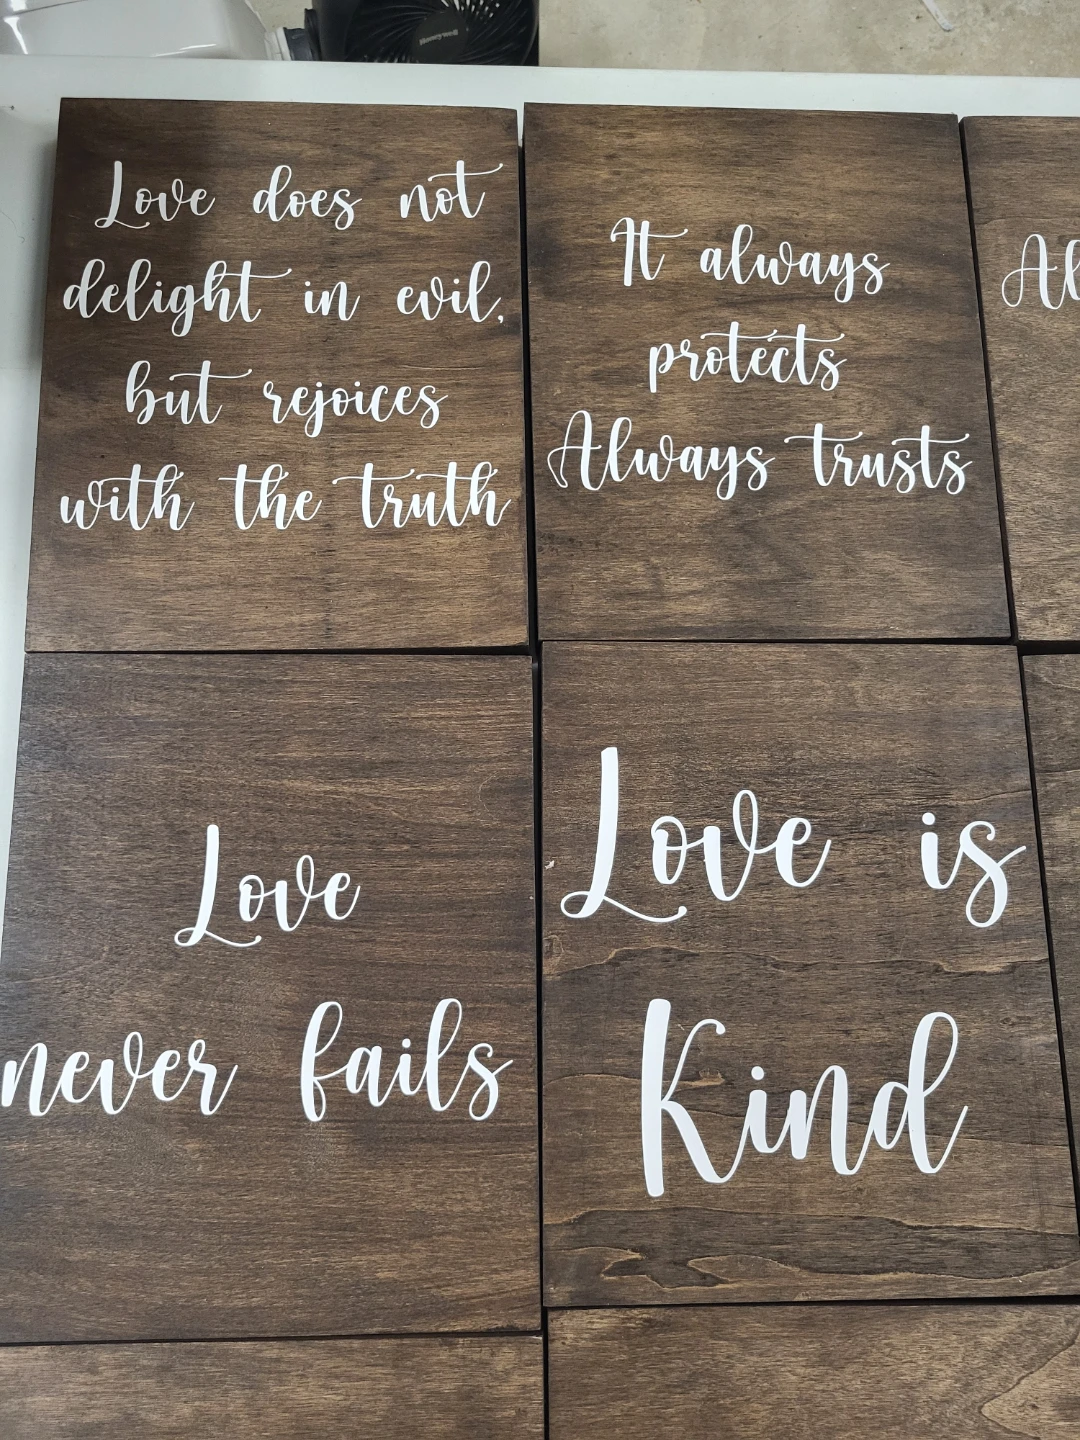 Honeywell
Love does not
delight in evil,
but rejoices
with the truth
It always
protects
Always trusts
Al
Love
never fails
Love is
Kind